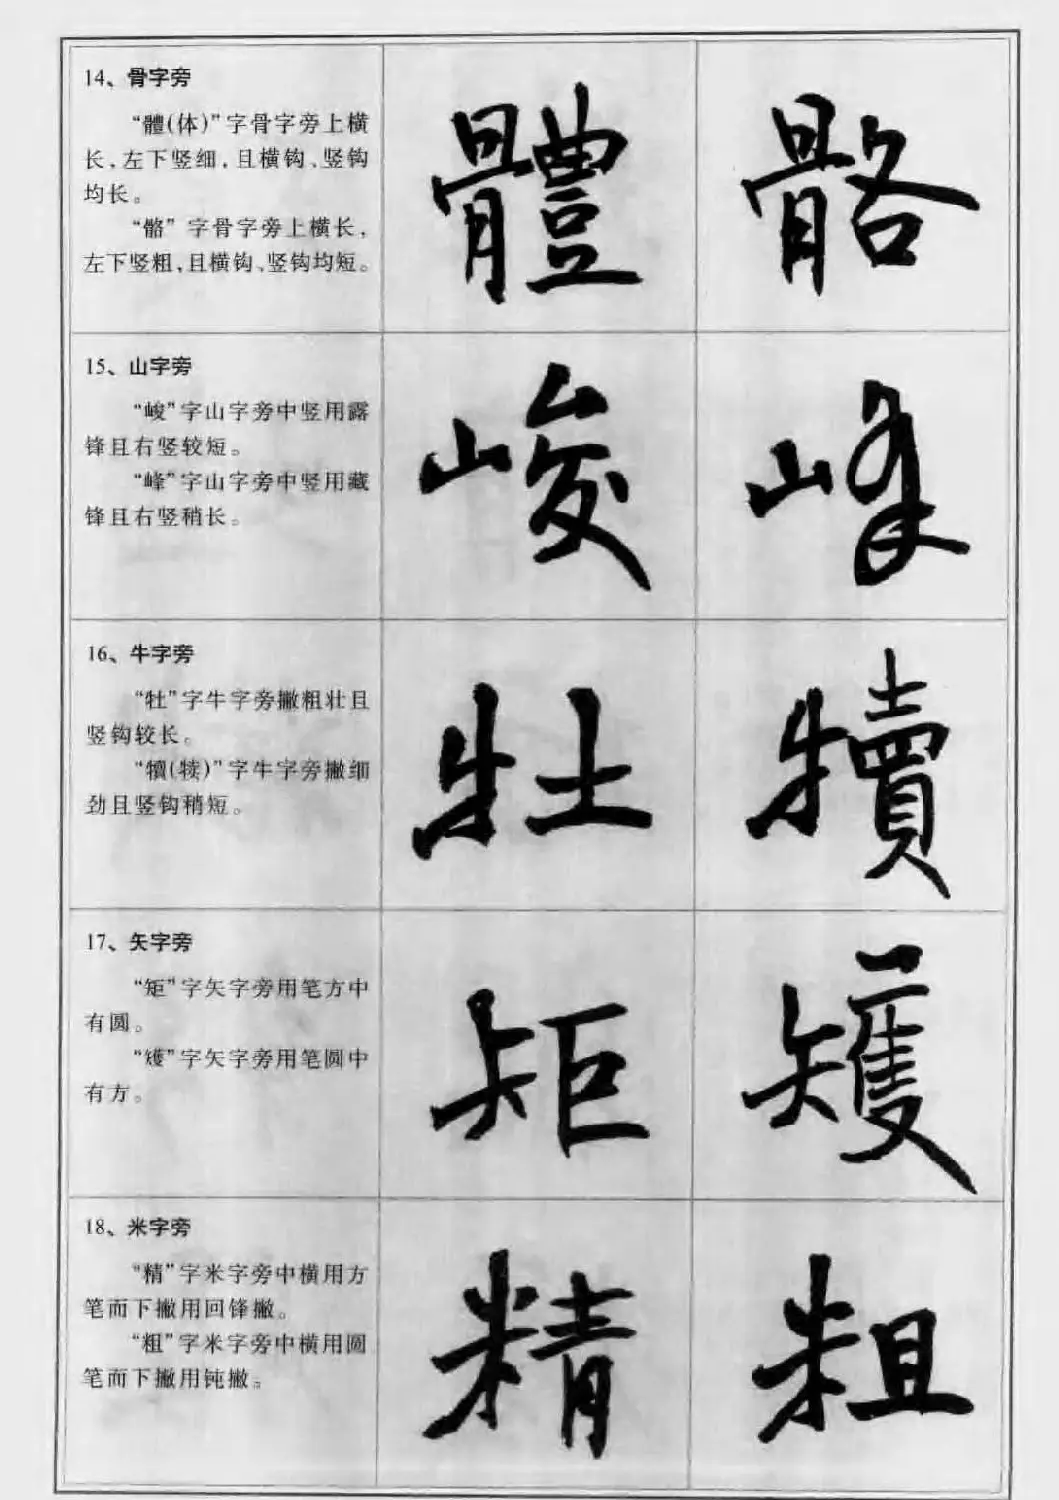 14、骨字旁
“體(体)”字骨字旁上横
长,左下竖细,且横钩、竖钩
均长。
“骼”字骨字旁上横长,
左下竖粗,且横钩、竖钩均短。
體 骼
15、山字旁
“峻”字山字旁中竖用露
锋且右竖较短。
“峰”字山字旁中竖用藏
锋且右竖稍长。
峻 峰
16、牛字旁
“牡”字牛字旁撇粗壮且
竖钩较长。
“犢(犊)”字牛字旁撇细
劲且竖钩稍短。
牡 犢
17、矢字旁
“矩”字矢字旁用笔方中
有圆。
“矱”字矢字旁用笔圆中
有方。
矩 矱
18、米字旁
“精”字米字旁中横用方
笔而下撇用回锋撇。
“粗”字米字旁中横用圆
笔而下撇用钝撇。
精 粗